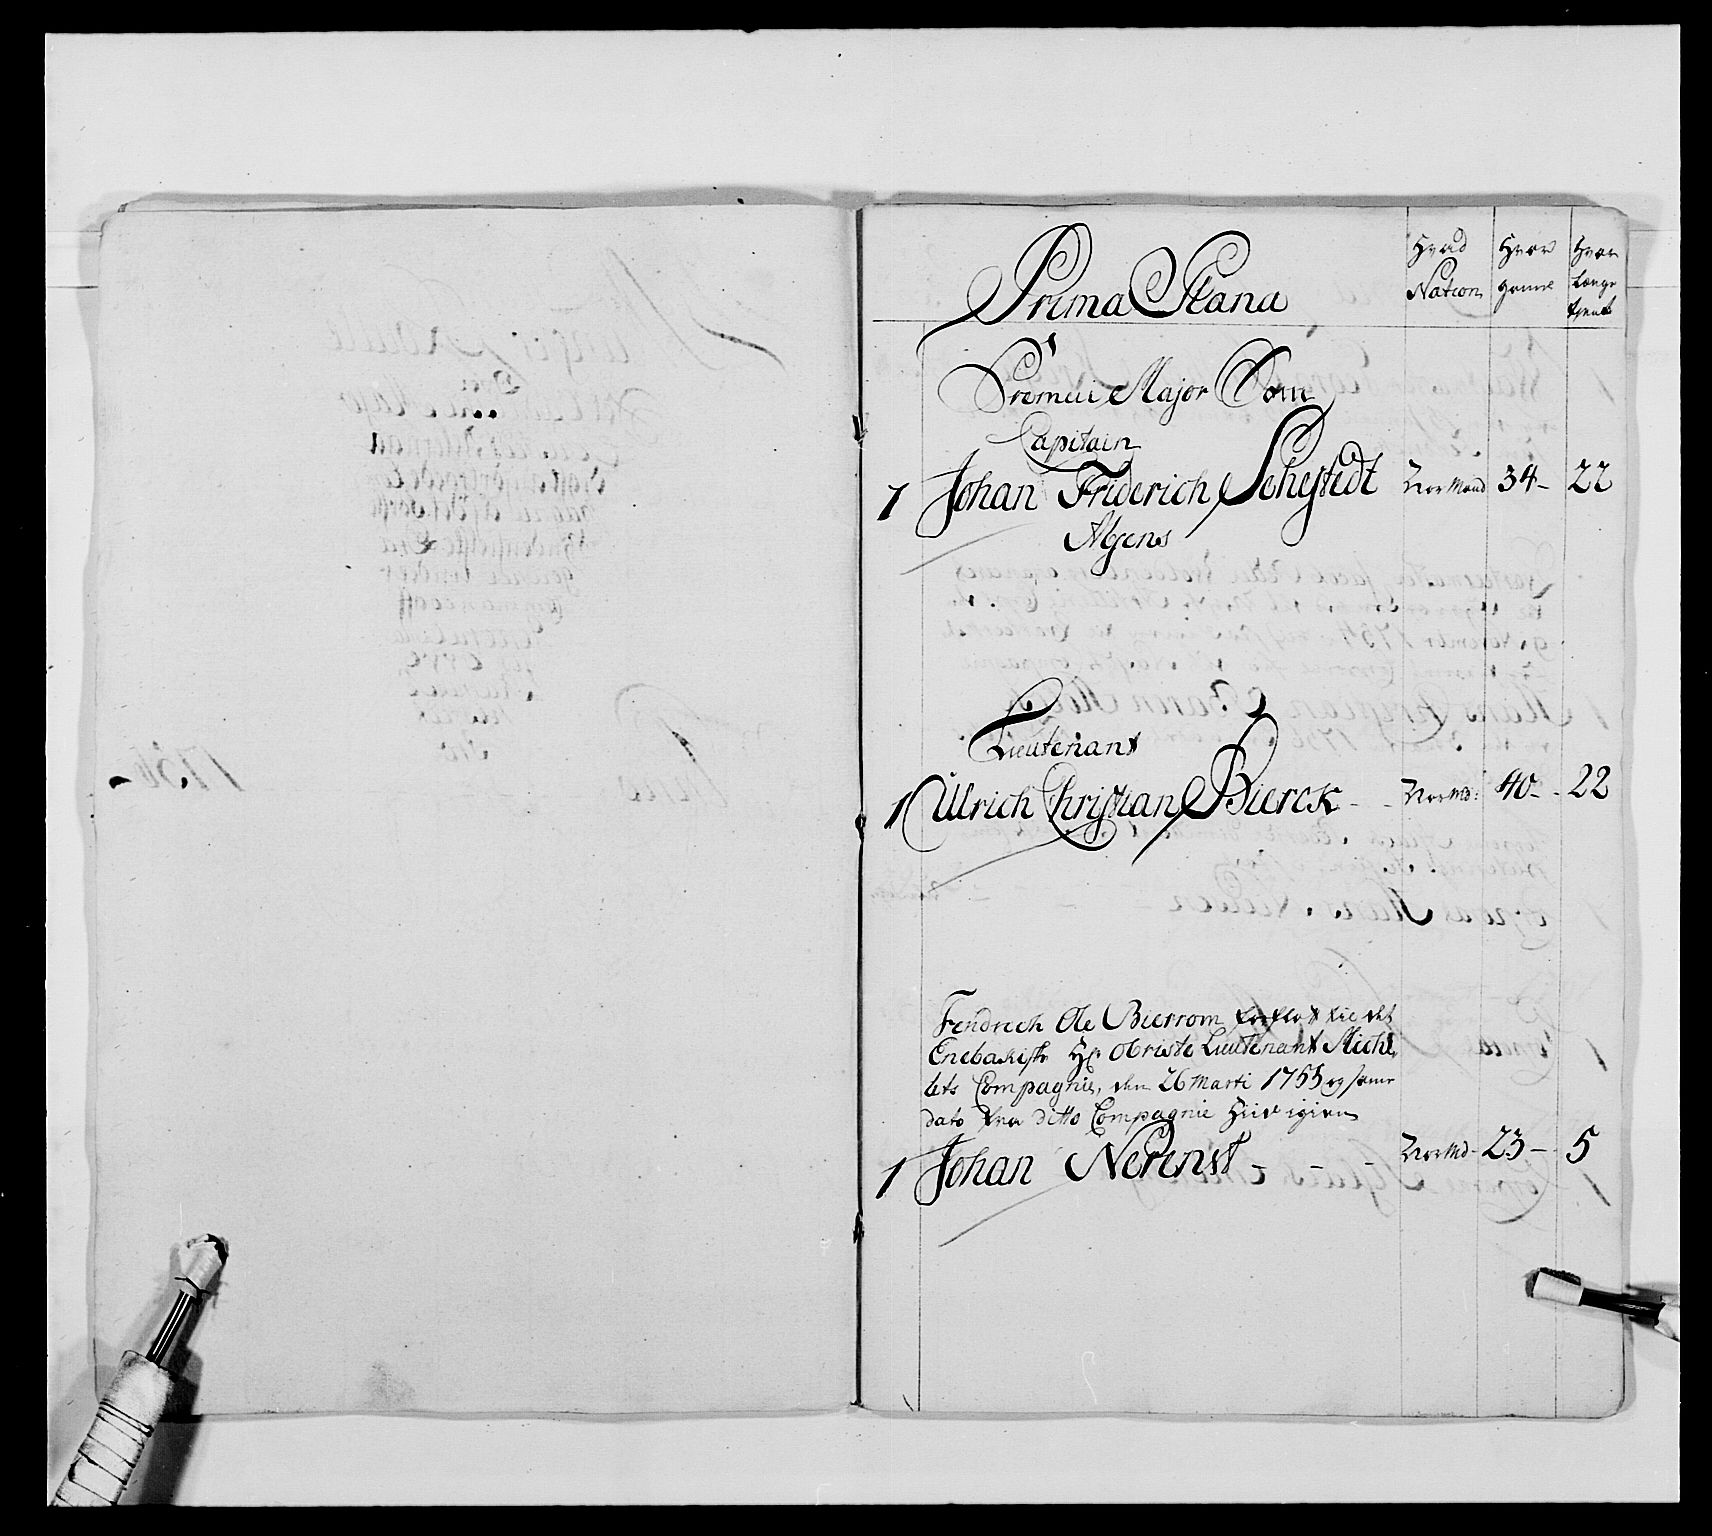 Prima Plana
Hvad Nation
Hvor gamel
Hvor Længe tjent
Premier Major Som
Capitain
1 Johan Friderich Sehestedt NorMand 34 - 22
Agens
Lieutenant
1 Ulrich Christian Bierck - - NorMd: 40 - - 22
Fendrich Ole Bierrom forflot til det
Enebakske Hr Obriste Lieutenant Michel
lets Compagnie, den 26 Marti 1755 og samme
dato fra ditto Compagnie Hiid igien
1 Johan Nerenst - - - NorMd - 23 - 5